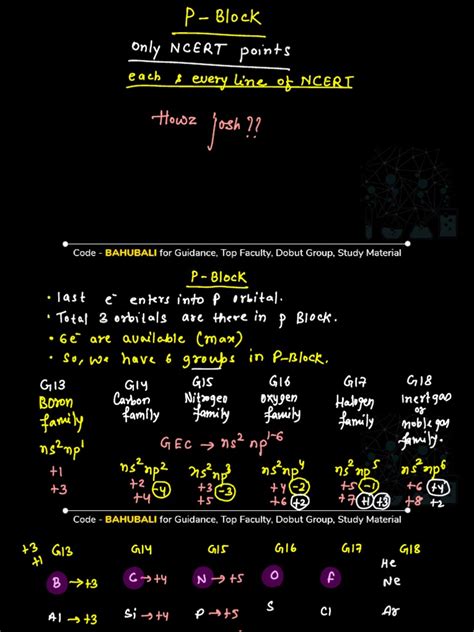 P-Block
only NCERT points
each & every line of NCERT
Howz Josh??
Code - BAHUBALI for Guidance, Top Faculty, Dobut Group, Study Material
P-Block
• last e⁻ enters into P orbital.
• Total 3 orbitals are there in p Block.
• 6e⁻ are available (max)
• So, we have 6 groups in P-Block.
G13 G14 G15 G16 G17 G18
Boron family Carbon family Nitrogen family oxygen family Halogen family inert gas or noble gas family.
GEC → ns² np¹⁻⁶
ns²np¹ ns²np² ns²np³ ns²np⁴ ns²np⁵ ns²np⁶
+1 +2 -4 +3 -3 +4 -2 +5 -1 +6 +4
+3 +4 +5 +6 +2 +7 +1 +3 +8 +2
Code - BAHUBALI for Guidance, Top Faculty, Dobut Group, Study Material
+3
+1 G13 G14 G15 G16 G17 G18
He
B → +3 C → +4 N → +5 O F Ne
Al → +3 Si → +4 P → +5 S Cl Ar